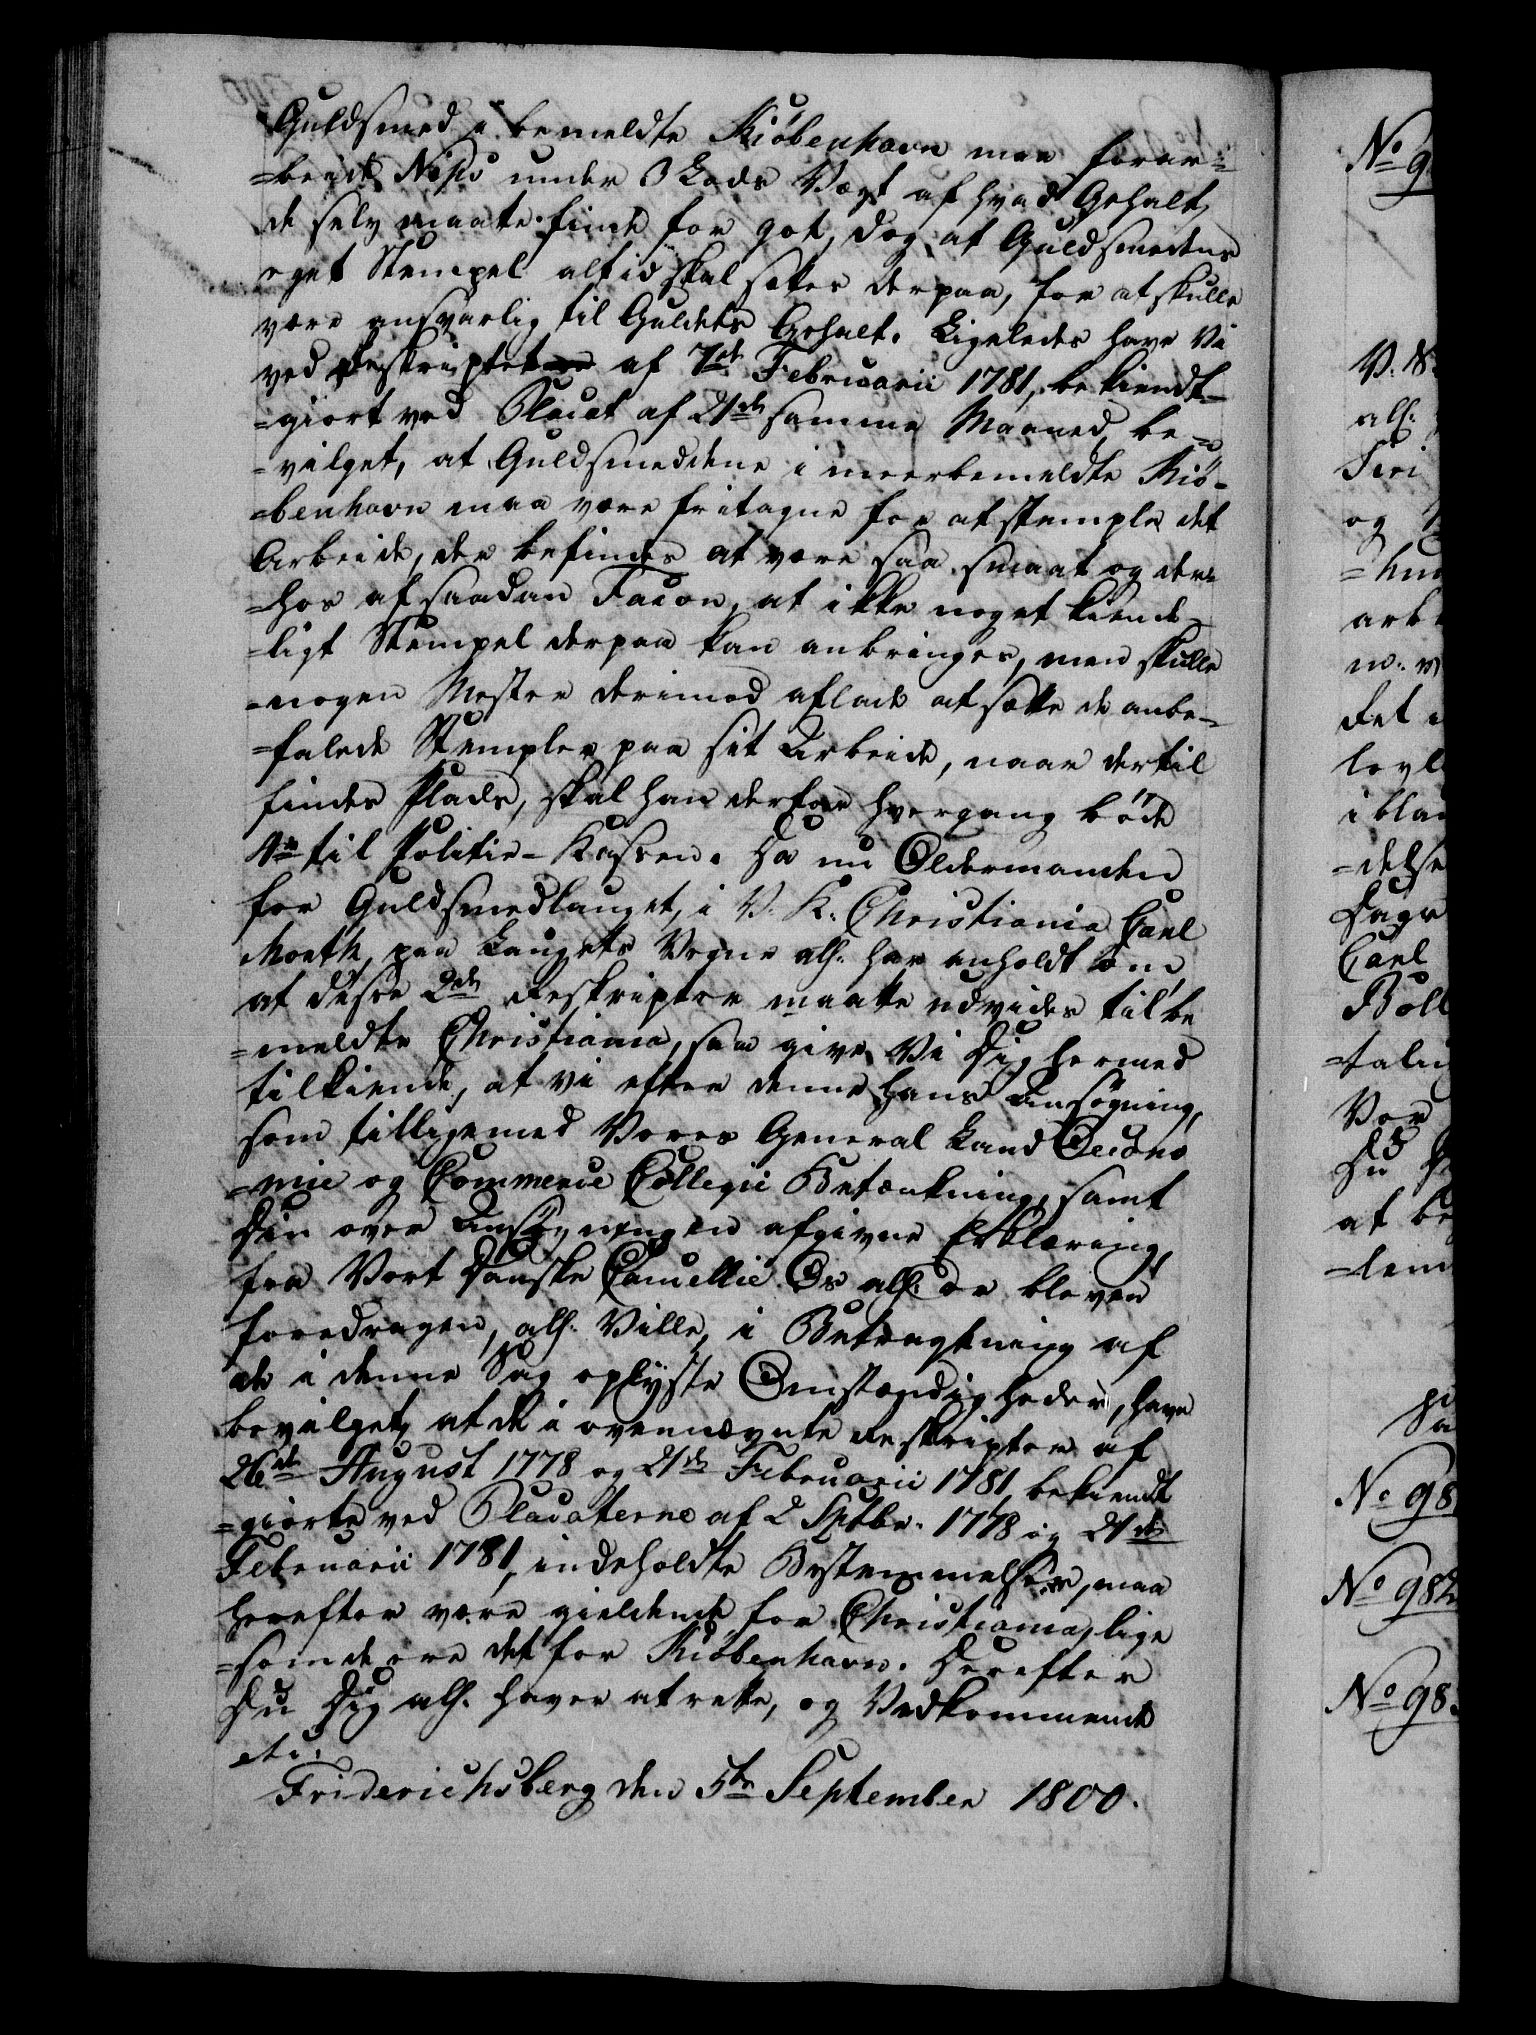 Guldsmed i bemeldte Kiöbenhavn maa forar-
=beide Nips under 3 Lods Vægt af hvad Gehalt
de selv maatte finde for got, dog at Guldsmedens
eget Stempel altid skal sættes derpaa, for at skulle
være ansvarlig til Guldets Gehalt. Ligeledes have Vi
ved Reskriptet af 7de Februarii 1781, bekiendt-
=giort ved Placat af 21de samme Maaned be-
=vilget, at Guldsmeddene i meerbemeldte Kiö-
=benhavn maa være fritagne for at stemple det
Arbeide, der befindes at være saa smaat og der-
=hos af saadan Facon, at ikke noget kiende-
=ligt Stempel derpaa kan anbringes, men skulle
nogen Mester derimod aflade at sætte de anbe-
=falede Stempler paa sit Arbeide, naar dertil
findes Plads, skal han derfor hvergang bøde
4 til Politie-Kassen. Da nu Oldermanden
for Guldsmedlauget i V. K. Christiania Carl
Moeth, paa Laugets Vegne alh. har anholdt om
at disse 2de Reskripter maatte udvides til be
=meldte Christiania, saa give Vi Dig hermed
tilkiende, at vi efter denne hans Ansøgning,
som tilligemed Vores General Land Oecono
=mie og Commerce Collegii Betænkning, samt
Din over Ansøgningen afgivne Erklæring,
fra Vort Danske Cancellie Os alh. er bleven
foredragen, alh. Ville, i Betragtning af
de i denne Sag oplyste Omstændigheder, have
bevilget, at de i ovennævnte Reskripter af
26de August 1778 og 21de Februarii 1781, bekiendt
=giorte ved Placaterne af 2 Septbr. 1778 og 21de
Februarii 1781, indeholdte Bestemmelser, maa
herefter være gieldende for Christiania, lige
=som de ere det for Kiöbenhavn. Herefter
Du Dig alh. haver at rette, og Vedkommende
etc.
Friderichsberg den 5te September 1800.
No 9
V. K.
alh.
Fri
og
=hu
arb
m. v
det
lovl
i bla
=delse
Dage
Carl
Boll
=talin
Vor
Du
at be
=lem
No 98
No 982
No 98